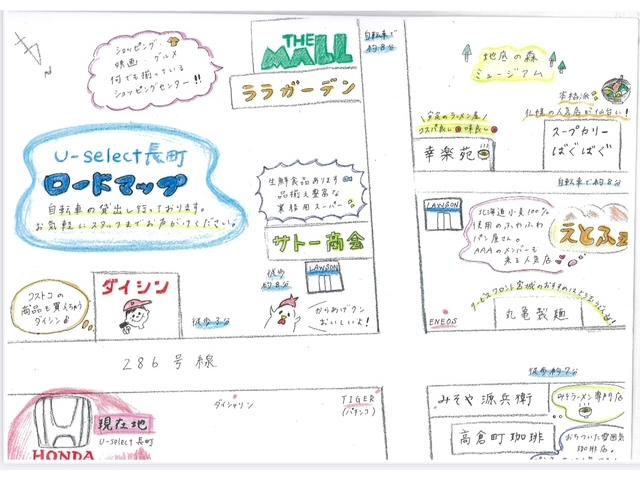 ショッピング・
映画・グルメ
何でも揃っている
ショッピングセンター!!
THE
MALL
ララガーデン
自転車で
約8分
地底の森
ミュージアム
本格派
札幌の人気店が仙台に!
スープカリー
ばぐばぐ
自転車で約8分
安定のラーメン屋
コスパ良し 味良し
幸楽苑
U-select長町
ロードマップ
自転車の貸出し行っております。
お気軽にスタッフまでお声がけください。
生鮮食品あります
品揃え豊富な
業務用スーパー
サトー商会
徒歩
約8分
LAWSON
からあげクン
おいしいよ!
コストコの
商品も買えちゃう
ダイシン
ダイシン
徒歩3分
LAWSON
北海道小麦100%
使用のふわふわ
パン屋さん。
AAAのメンバーも
来る人気店
えとふぇ
サービスフロント宮城のおすすめはとり玉ぶっかけ
丸亀製麺
ENEOS
徒歩約7分
286号線
ダイシャリン
TIGER
(パチンコ)
現在地
U-select 長町
HONDA
みそや 源兵衛
みそラーメン専門店
高倉町珈琲
おちついた雰囲気
珈琲店。